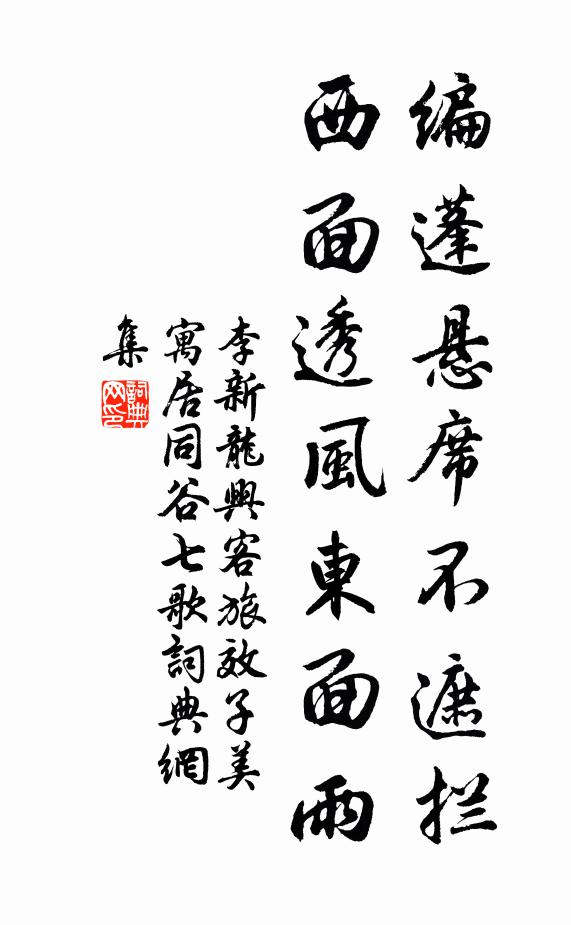 编蓬悬席不遮拦
西面透風東面雨
李新龍興客旅效子美
寓居同谷七歌詞典網
集
詞典
网印